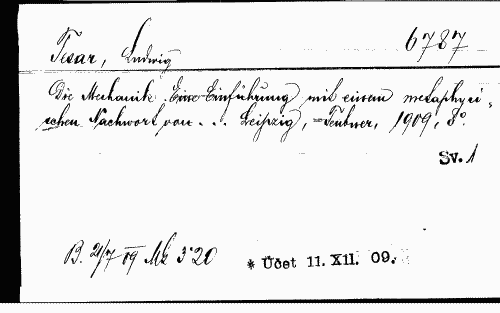 Tesar, Ludwig 6787
Die Mechanik. Eine Einführung mit einem metaphysi-
schen Nachwort von... Leipzig, Teubner, 1909, 8°.
Sv. 1
B. 21/7 09 Mk 3·20 * Účet 11. XII. 09.